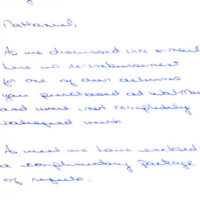 Nathaniel,
As we discussed via e-mail
here is re-imbursement
for one of our
you purchased at Wal-Mart
and were not completely
satisfied with.
As well we have enclosed
a complimentary package
of